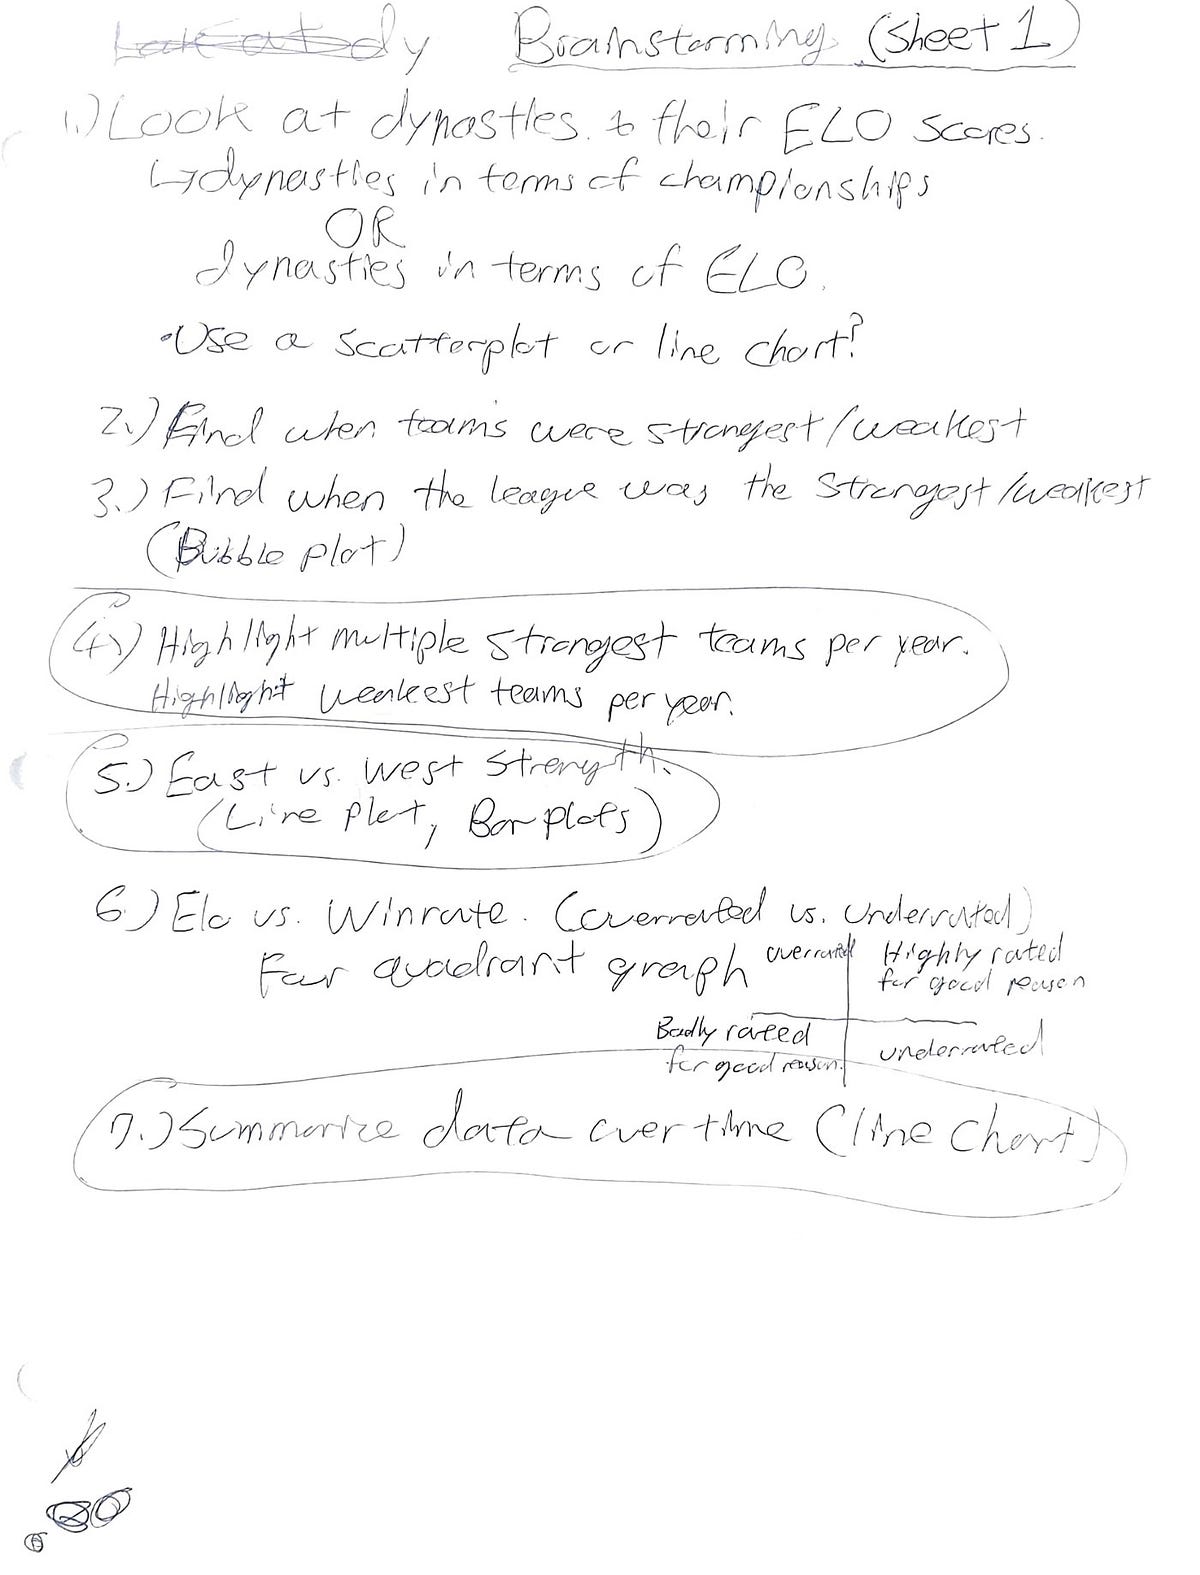 Look at dy Brainstorming (Sheet 1)
1.) Look at dynasties. & their ELO scores.
↳dynasties in terms of championships
OR
dynasties in terms of ELO.
•Use a scatterplot or line chart?
2.) Find when teams were strongest/weakest
3.) Find when the league was the strongest/weakest
(Bubble plot)
4.) Highlight multiple strongest teams per year.
Highlight weakest teams per year.
5.) East vs. West Strength.
(Line Plot, Bar plots)
6.) Elo vs. Winrate. (overrated vs. Underrated)
Four quadrant graph
overrated
Highly rated
for good reason
Badly rated
for good reason.
underrated
7.) Summarize data over time (line chart)